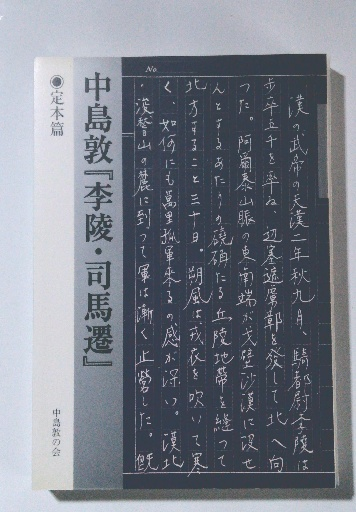 中島敦『李陵・司馬遷』
◉定本篇
中島敦の会
No.
漢の武帝の天漢二年秋九月、騎都尉李陵は
歩卒五千を率ゐ、辺塞遮虜鄣を発して北へ向
つた。阿爾泰山脈の東南端が戈壁沙漠に没せ
んとするあたりの磽确たる丘陵地帶を縫つて
北行すること三十日。朔風は戎衣を吹いて寒
く、如何にも萬里孤軍來るの感が深い。漠北
・浚稽山の麓に到つて軍は漸く止營した。既